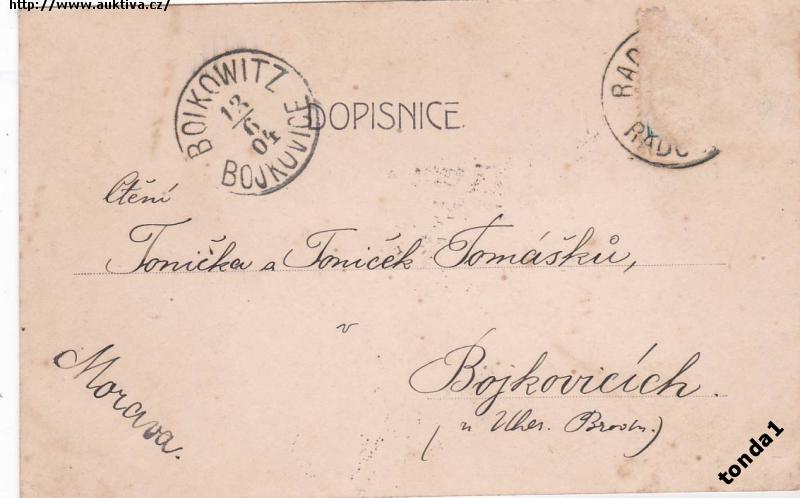 http://www.auktiva.cz/
BOJKOWITZ
13/6 04
BOJKOVICE
DOPISNICE.
RADO
Ctění
Tonička a Toníček Tomášků,
v
Bojkovicích.
(u Uher. Brodu.)
Morava.
tonda1